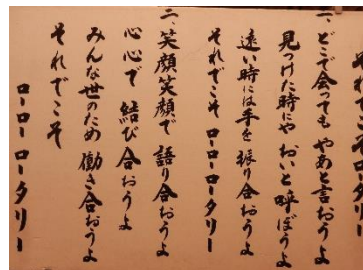 それでこそロータリー
一、どこで会ってもやあと言おうよ
見つけた時にやおいと呼ぼうよ
遠い時には手を振り合おうよ
それでこそローローロータリー
二、笑顔笑顔で語り合おうよ
心心で結び合おうよ
みんな世のため働き合おうよ
それでこそ
ローローロータリー